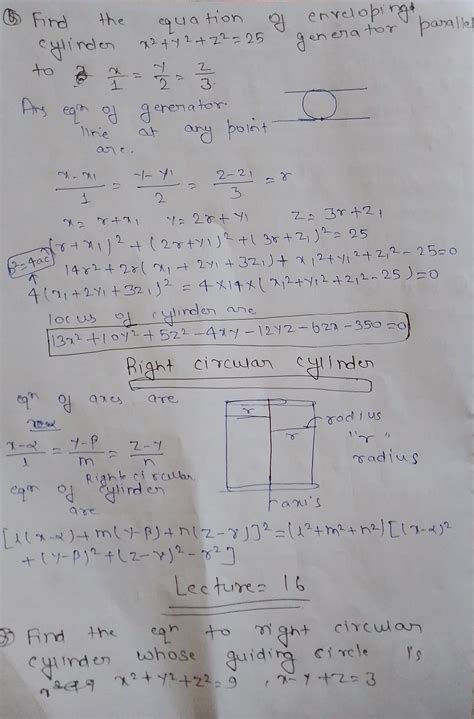 ⑤ Find the equation of enveloping
cylinder x²+y²+z²=25 generator parallel
to x/1 = y/2 = z/3
Ans eqn of generator
line at any point
are.
x-x1/1 = y-y1/2 = z-z1/3 = r
x= r+x1 y= 2r+y1 z= 3r+z1
(r+x1)²+(2r+y1)²+(3r+z1)²=25
b²=4ac
14r²+2r(x1+2y1+3z1)+x1²+y1²+z1²-25=0
4(x1+2y1+3z1)² = 4×14×(x1²+y1²+z1²-25)=0
locus of cylinder are
13x²+10y²+5z²-4xy-12yz-6zx-350=0
Right circular cylinder
eqn of axes are
x-α/l = y-β/m = z-γ/n
r
r
rodius
"r"
radius
axis
eqn of Right circular cylinder
are
[l(x-α)+m(y-β)+n(z-γ)]²=(l²+m²+n²)[(x-α)²
+(y-β)²+(z-γ)²-r²]
Lecture= 16
Find the eqn to right circular
cylinder whose guiding circle is
x²+y²+z²=9 , x-y+z=3